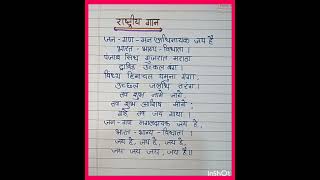 राष्ट्रीय गान
जन-गण-मन अधिनायक जय हे
भारत-भाग्य-विधाता।
पंजाब सिंध गुजरात मराठा
द्राविड़ उत्कल बंगा।
विंध्य हिमाचल यमुना गंगा,
उच्छल जलधि तरंगा।
तव शुभ नामे जागे,
तव शुभ आशिष मांगे,
गाहे तव जय गाथा।
जन-गण मंगलदायक जय हे,
भारत-भाग्य-विधाता।
जय हे, जय हे, जय हे,
जय जय जय, जय हे॥
InShOt